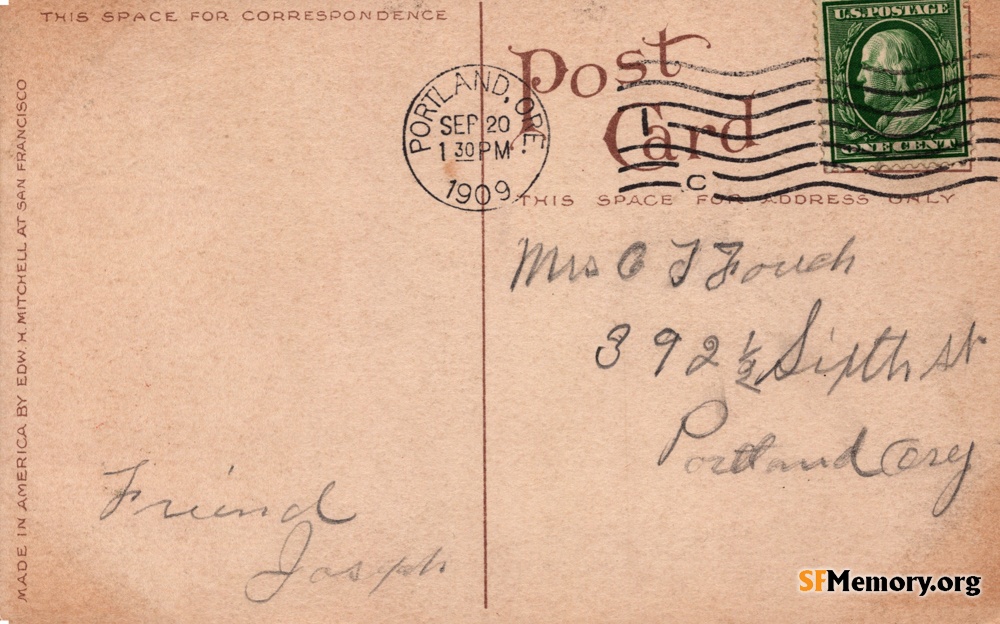 THIS SPACE FOR CORRESPONDENCE
MADE IN AMERICA BY EDW. H. MITCHELL AT SAN FRANCISCO
Friend
Joseph
PORTLAND, ORE.
SEP 20
1 30 PM
1909
Post
Card
1
C
U.S. POSTAGE
ONE CENT
THIS SPACE FOR ADDRESS ONLY
Mrs C T Fouch
392 1/2 Sixth St
Portland Oreg
SFMemory.org